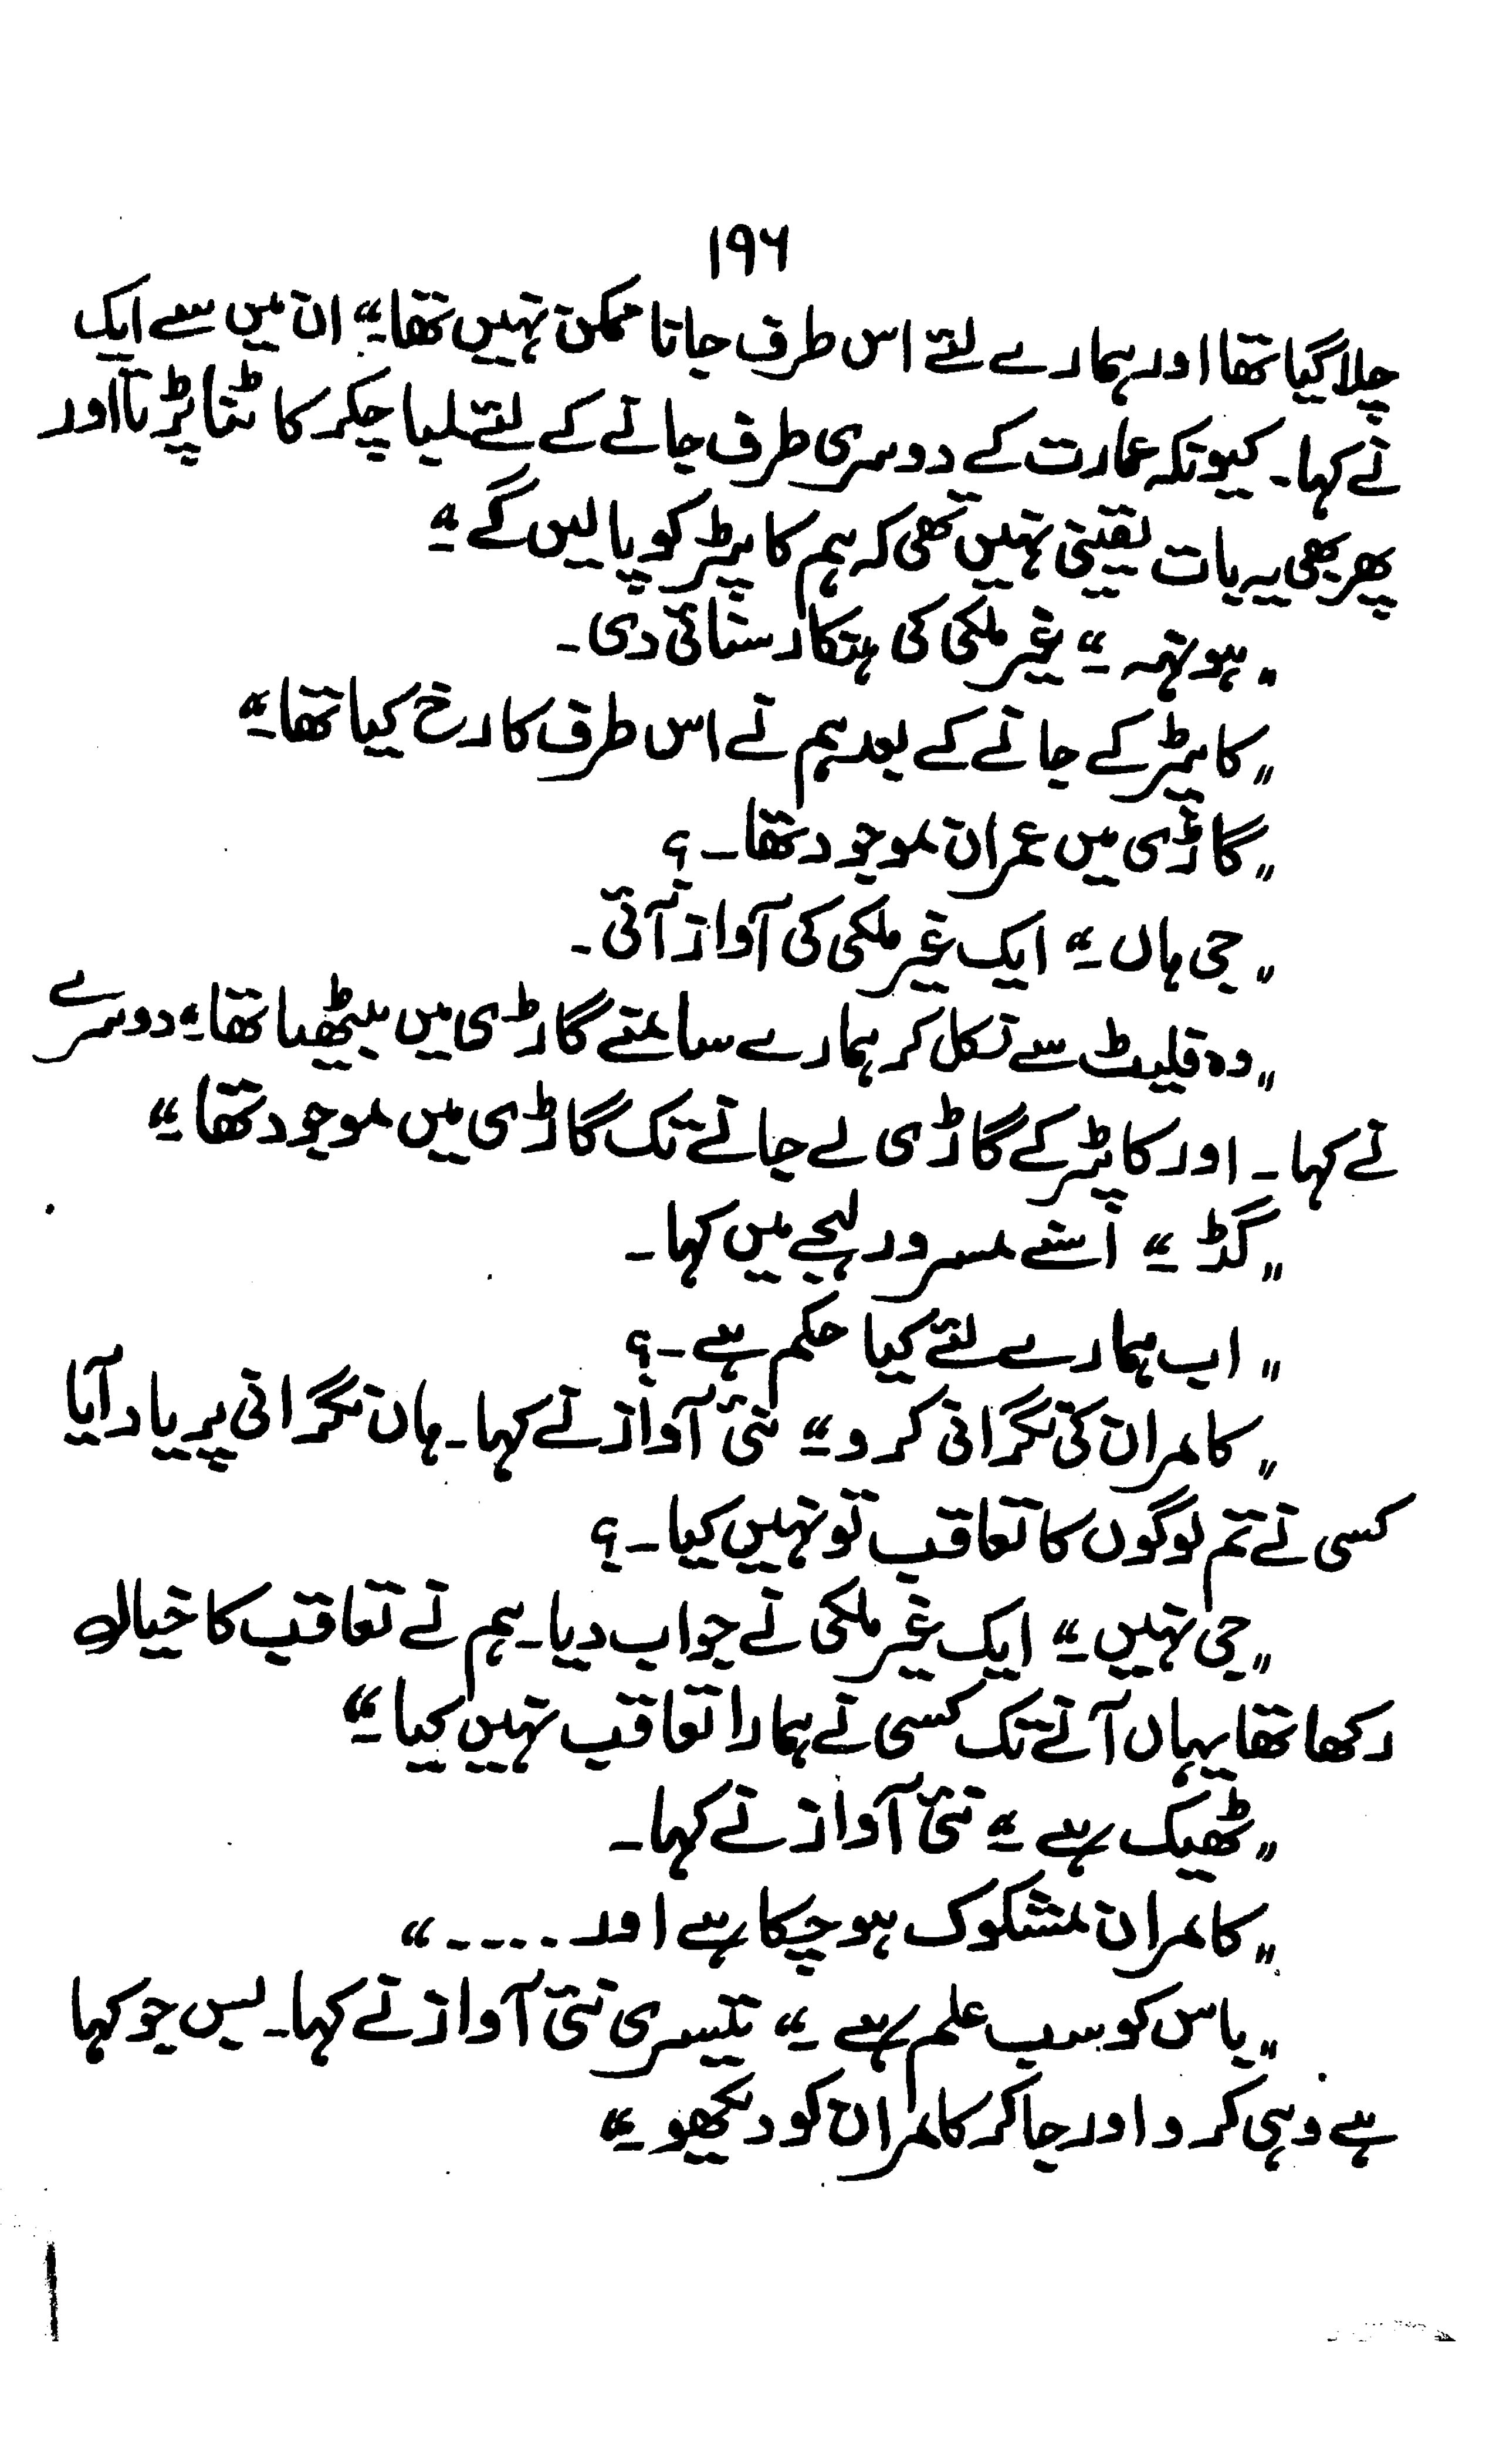 ۱۹۶
چلا گیا تھا اور ہمارے لئے اس طرف جانا ممکن نہیں تھا۔“ ان میں سے ایک
نے کہا۔ کیونکہ عمارت کے دوسری طرف جانے کے لئے لمبا چکر کاٹنا پڑتا اور
پھر بھی یہ بات یقینی نہیں تھی کہ ہم کاپٹر کو پا لیں گے۔“
”ہونہہ۔“ غیر ملکی کی ہنکار سنائی دی۔
”کاپٹر کے جانے کے بعد ہم نے اس طرف کا رخ کیا تھا۔“
”گاڑی میں عمران موجود تھا۔؟
”جی ہاں۔“ ایک غیر ملکی کی آواز آئی۔
”وہ فلیٹ سے نکل کر ہمارے سامنے گاڑی میں بیٹھا تھا۔“ دوسرے
نے کہا۔ اور کاپٹر کے گاڑی لے جانے تک گاڑی میں موجود تھا۔“
”گڈ۔“ اُسنے مسرور لہجے میں کہا۔
”اب ہمارے لئے کیا حکم ہے۔؟
”کامران کی نگرانی کرو۔“ نئی آواز نے کہا۔ ہاں نگرانی پر یاد آیا
کسی نے تم لوگوں کا تعاقب تو نہیں کیا۔؟
”جی نہیں۔“ ایک غیر ملکی نے جواب دیا۔ ہم نے تعاقب کا خیال
رکھا تھا یہاں آنے تک کسی نے ہمارا تعاقب نہیں کیا۔“
”ٹھیک ہے۔“ نئی آواز نے کہا۔
”کامران مشکوک ہو چکا ہے اور ۔۔۔۔۔“
”باس کو سب علم ہے۔“ تیسری نئی آواز نے کہا۔ بس جو کہا
ہے وہی کرو اور جا کر کامران کو دیکھو۔“